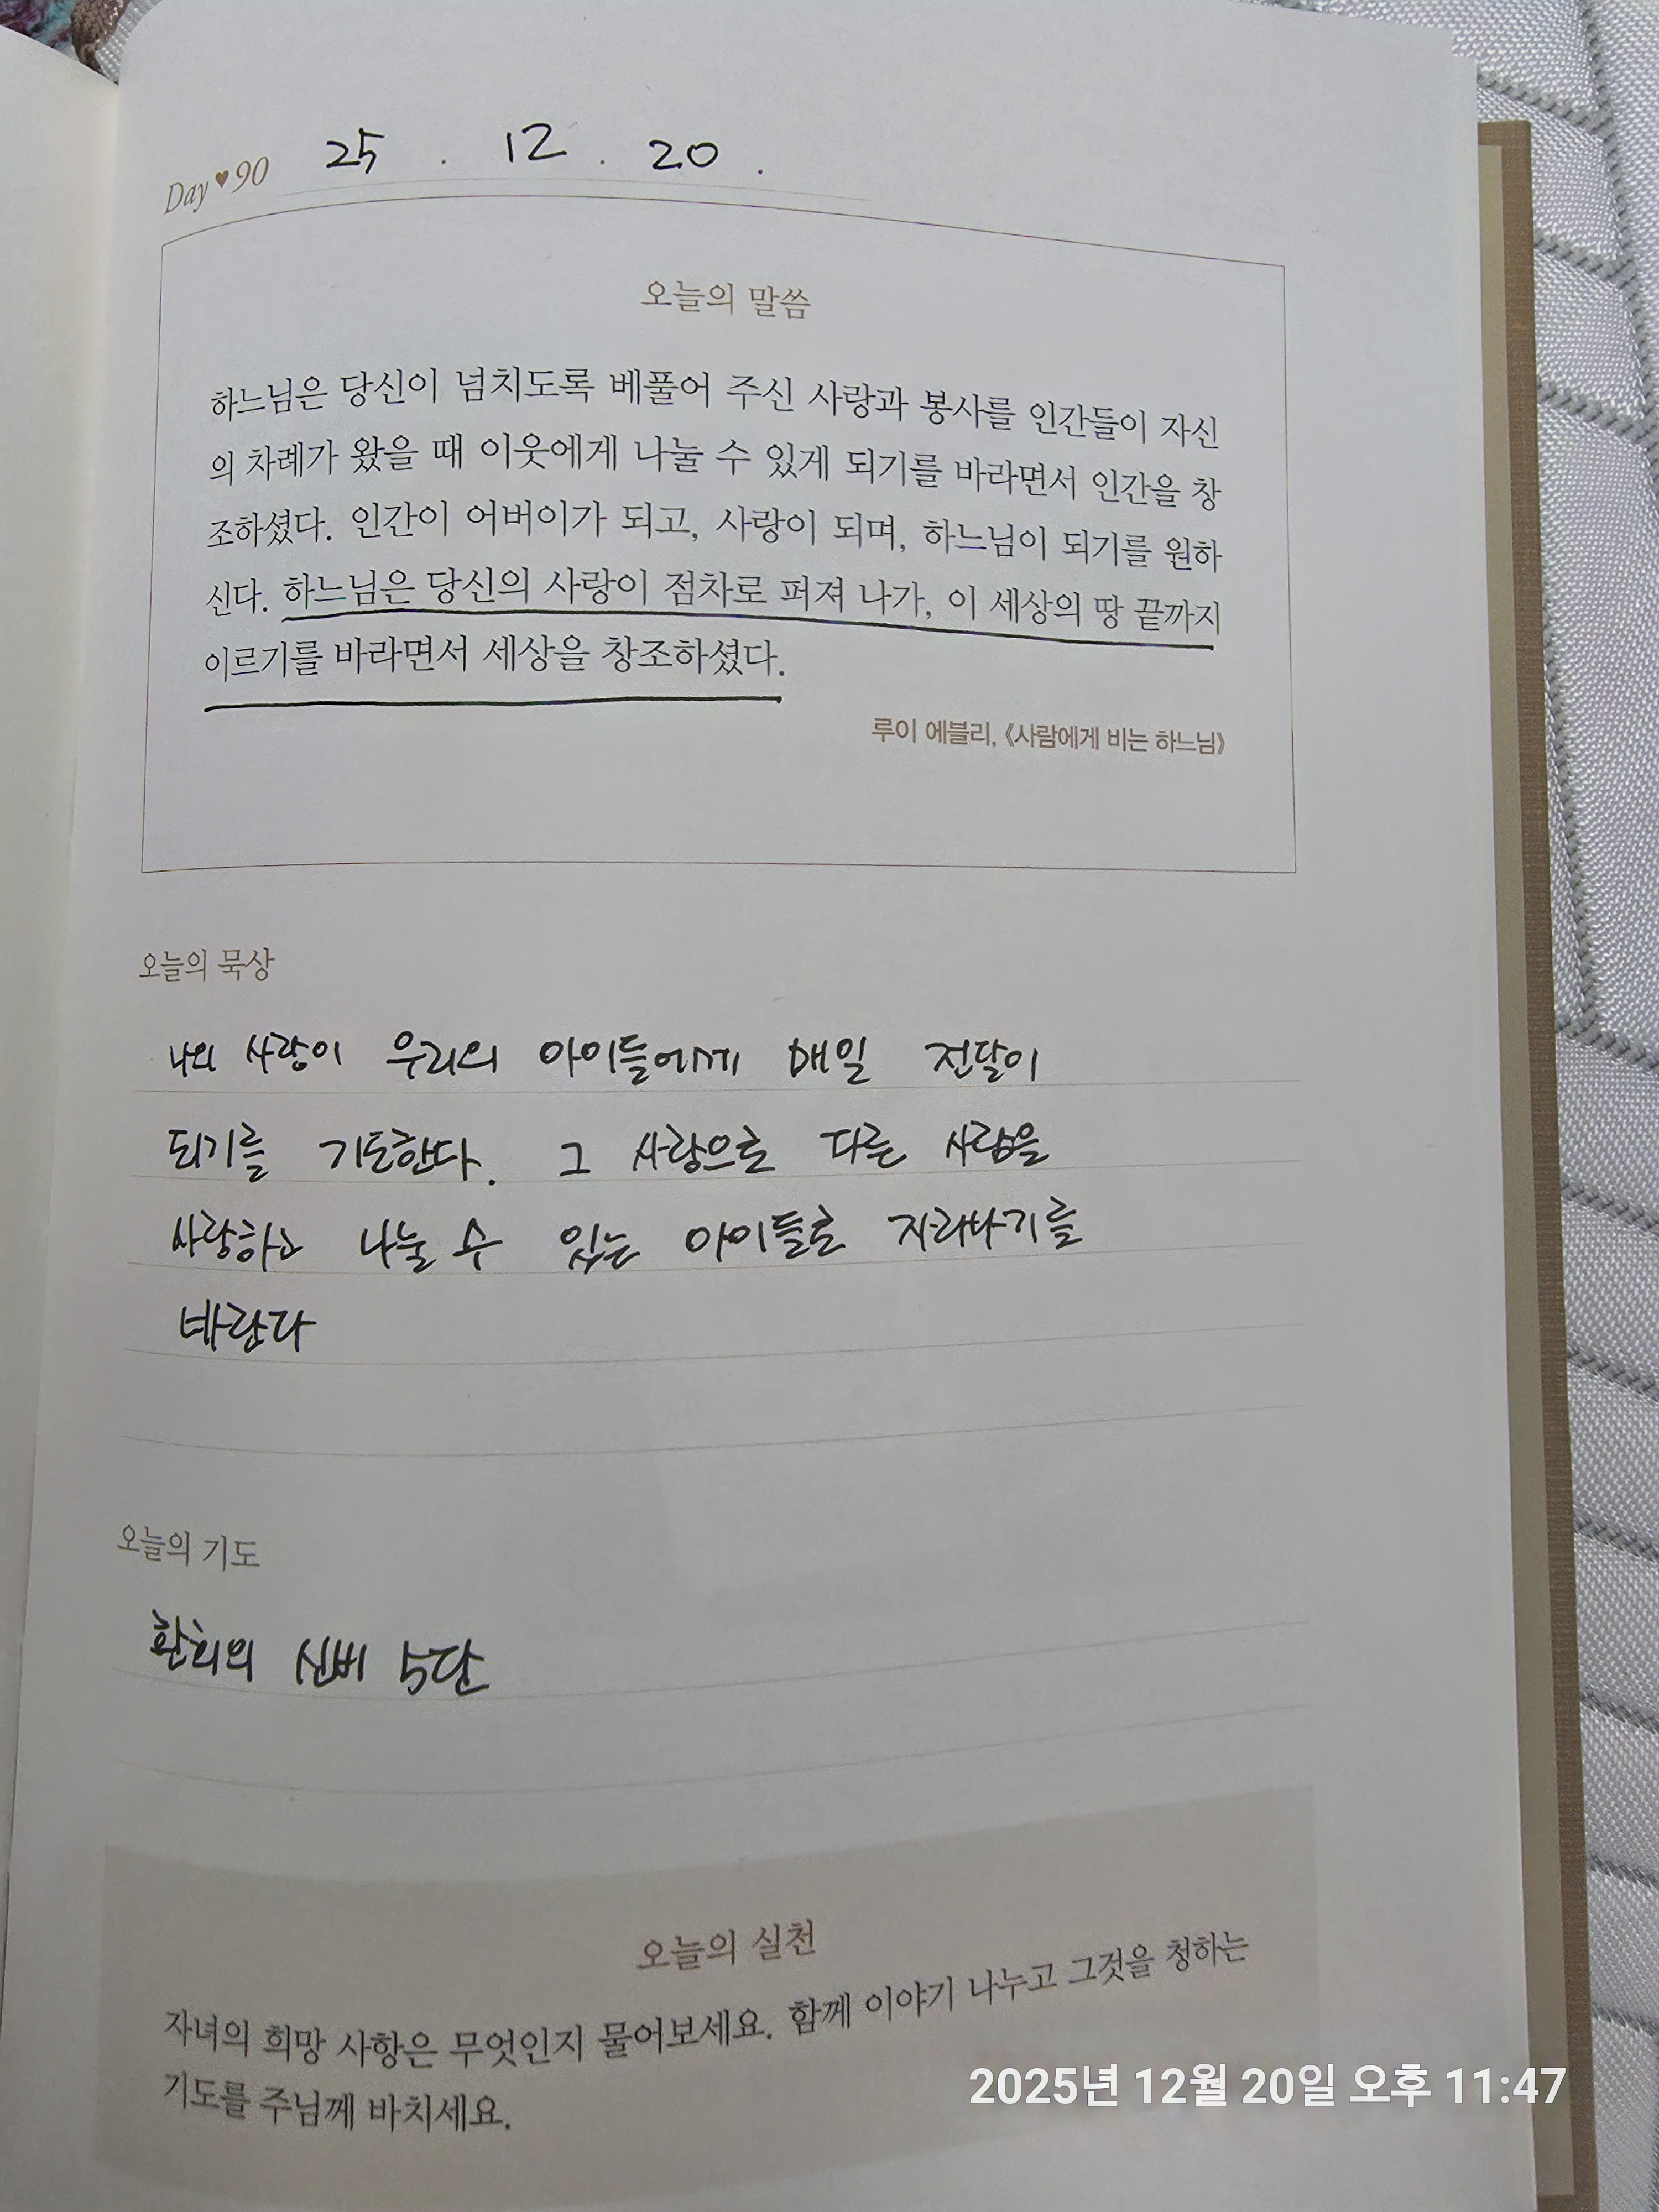 Day♥90 25 . 12 . 20 .
오늘의 말씀
하느님은 당신이 넘치도록 베풀어 주신 사랑과 봉사를 인간들이 자신
의 차례가 왔을 때 이웃에게 나눌 수 있게 되기를 바라면서 인간을 창
조하셨다. 인간이 어버이가 되고, 사랑이 되며, 하느님이 되기를 원하
신다. 하느님은 당신의 사랑이 점차로 퍼져 나가, 이 세상의 땅 끝까지
이르기를 바라면서 세상을 창조하셨다.
루이 에블리, 《사람에게 비는 하느님》
오늘의 묵상
나의 사랑이 우리의 아이들에게 매일 전달이
되기를 기도한다. 그 사랑으로 다른 사람을
사랑하고 나눌 수 있는 아이들로 자라나기를
바란다
오늘의 기도
환희의 신비 5단
오늘의 실천
자녀의 희망 사항은 무엇인지 물어보세요. 함께 이야기 나누고 그것을 청하는
기도를 주님께 바치세요.
2025년 12월 20일 오후 11:47